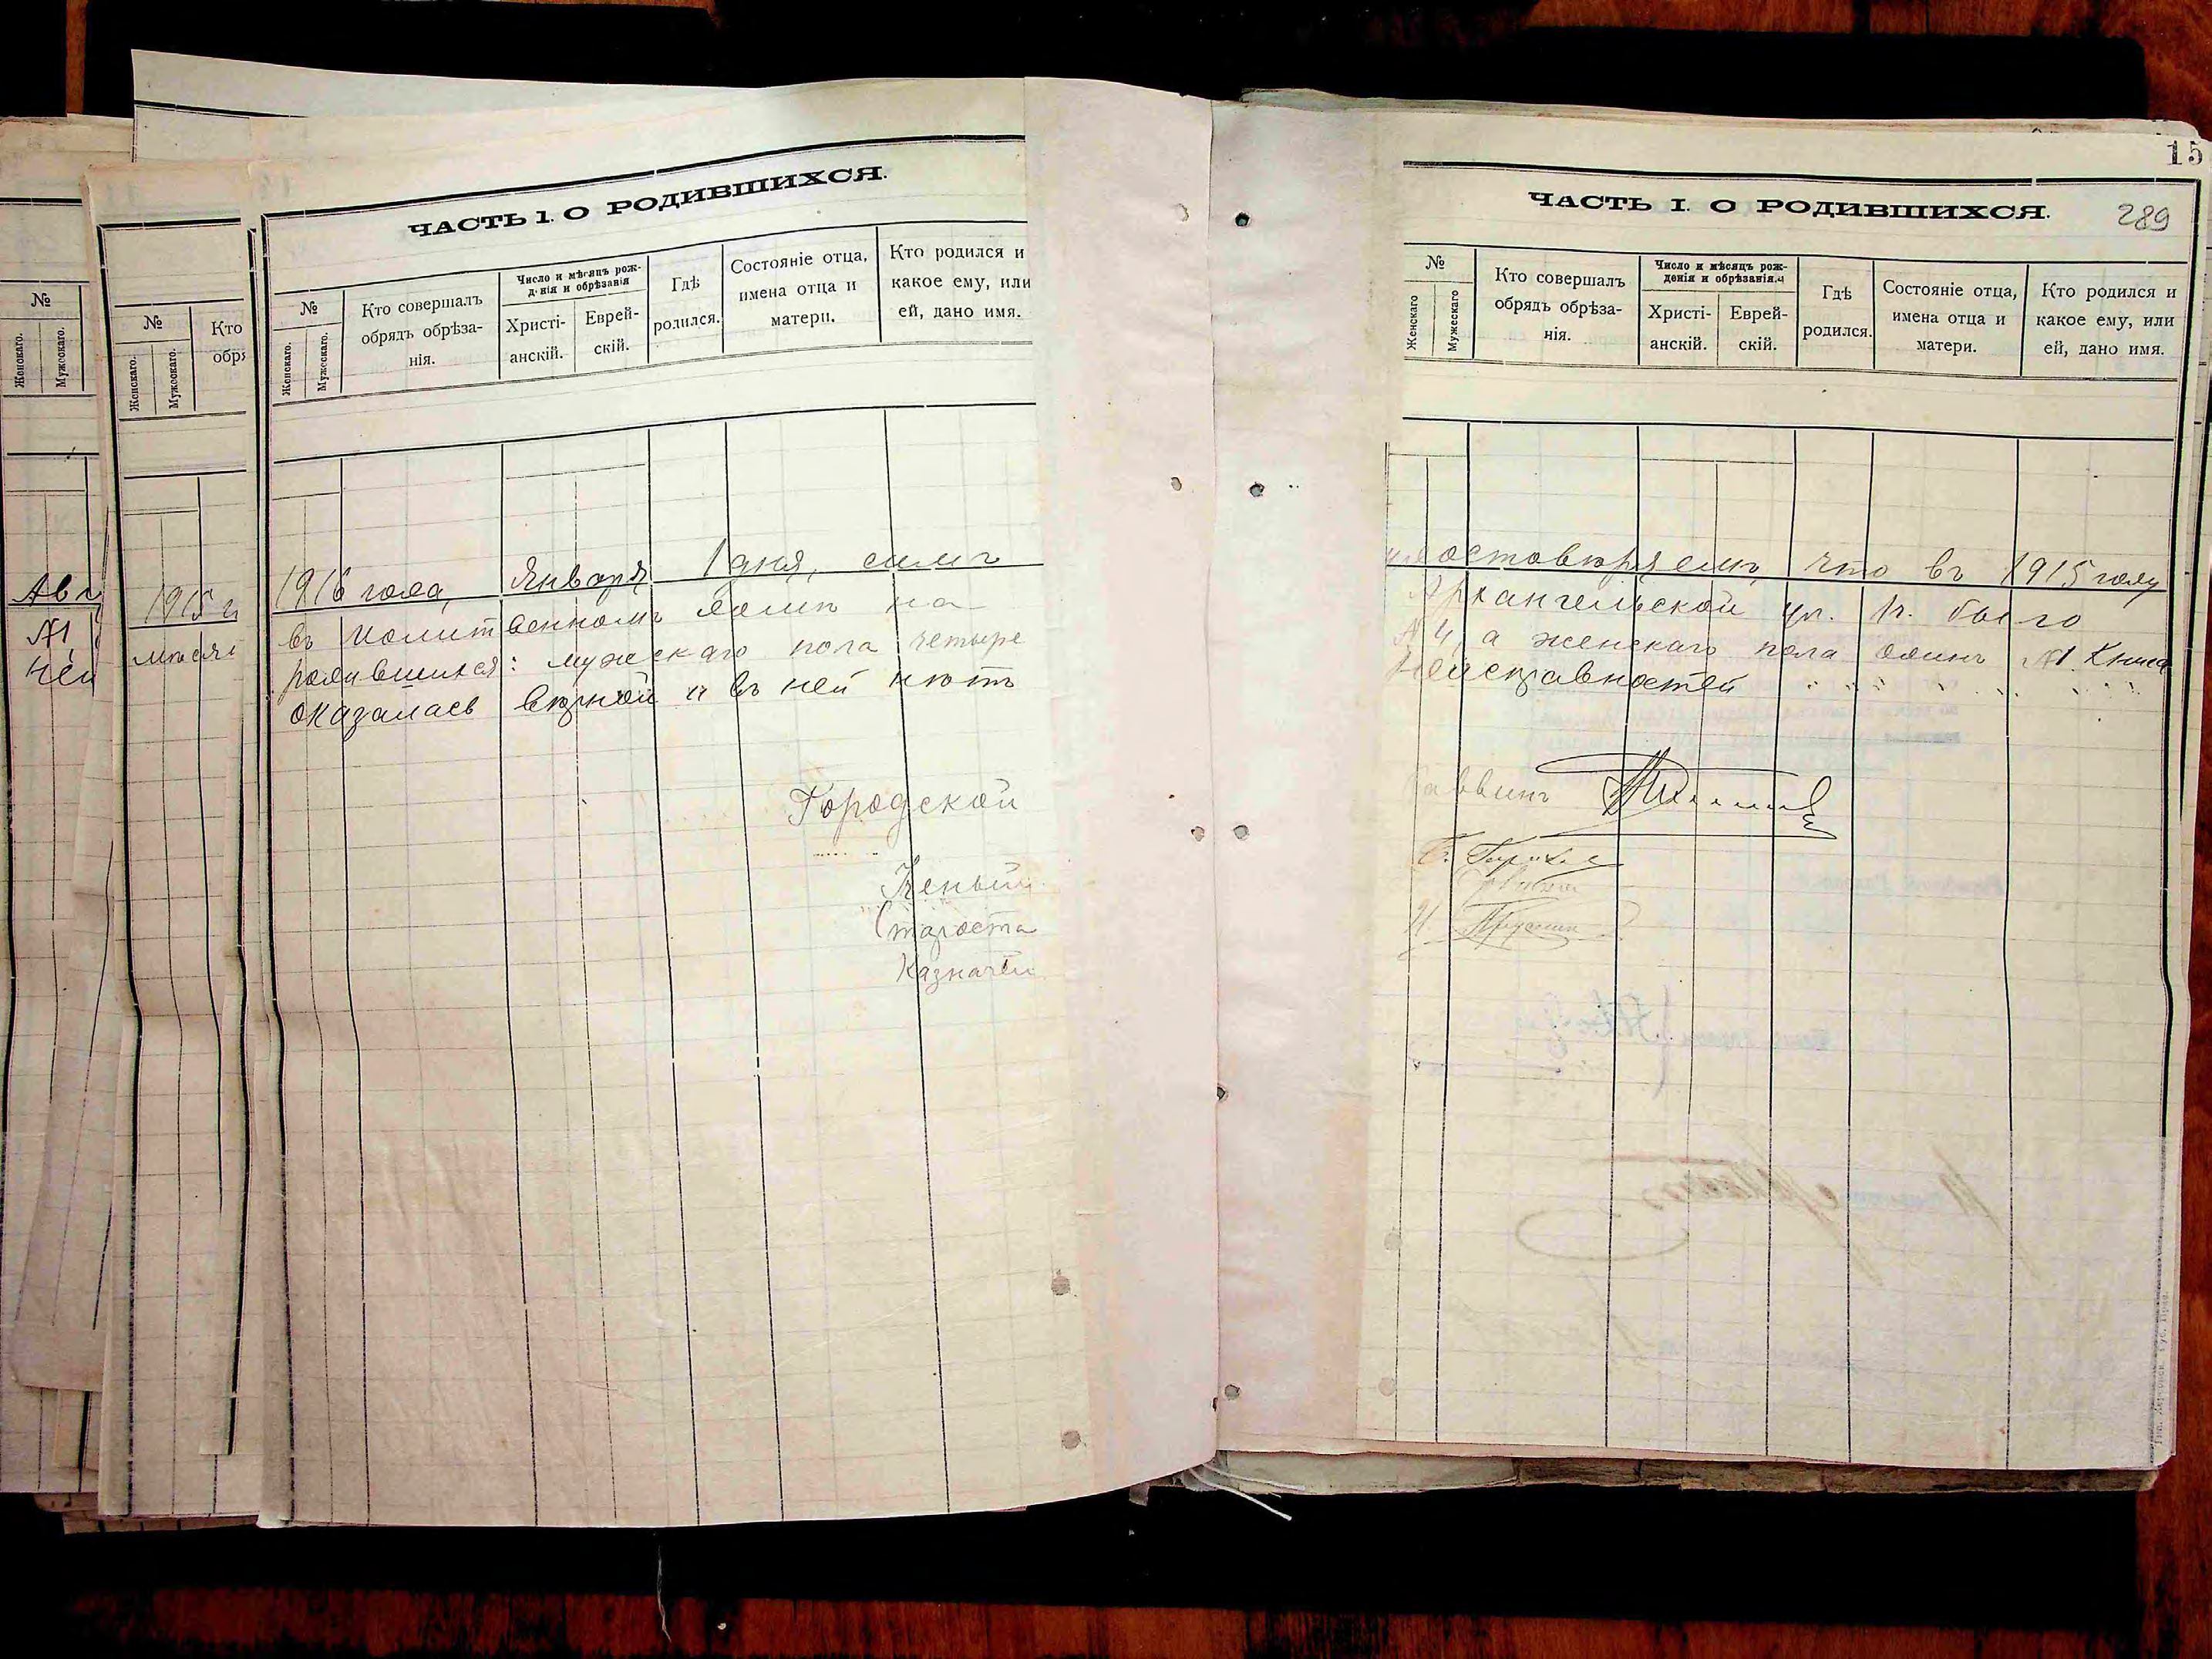 ЧАСТЬ 1. О РОДИВШИХСЯ.
№
Женскаго.
Мужескаго.
Кто совершалъ
обрядъ обрѣза-
нія.
Число и мѣсяцъ рож-
денія и обрѣзанія
Христі-
анскій.
Еврей-
скій.
Гдѣ
родился.
Состояніе отца,
имена отца и
матери.
Кто родился и
какое ему, или
ей, дано имя.
1916 года, Января 1 дня, симъ
въ молитвенномъ домѣ на
родившихся: мужескаго пола четыре
оказалась вѣрной и въ ней нѣтъ
Городской
Ученый
Староста
Казначей
№
Женскаго.
Мужескаго.
Кто
обря
1915 г
мѣсяц
№
Женскаго.
Мужескаго.
Авг
№1
ней
15
289
ЧАСТЬ I. О РОДИВШИХСЯ.
№
Женскаго
Мужескаго
Кто совершалъ
обрядъ обрѣза-
нія.
Число и мѣсяцъ рож-
денія и обрѣзанія.
Христі-
анскій.
Еврей-
скій.
Гдѣ
родился.
Состояніе отца,
имена отца и
матери.
Кто родился и
какое ему, или
ей, дано имя.
удостовѣряемъ, что въ 1915 году
Архангельской ул. было
№ 4, а женскаго пола одинъ №1 Книга
неисправностей
Раввинъ